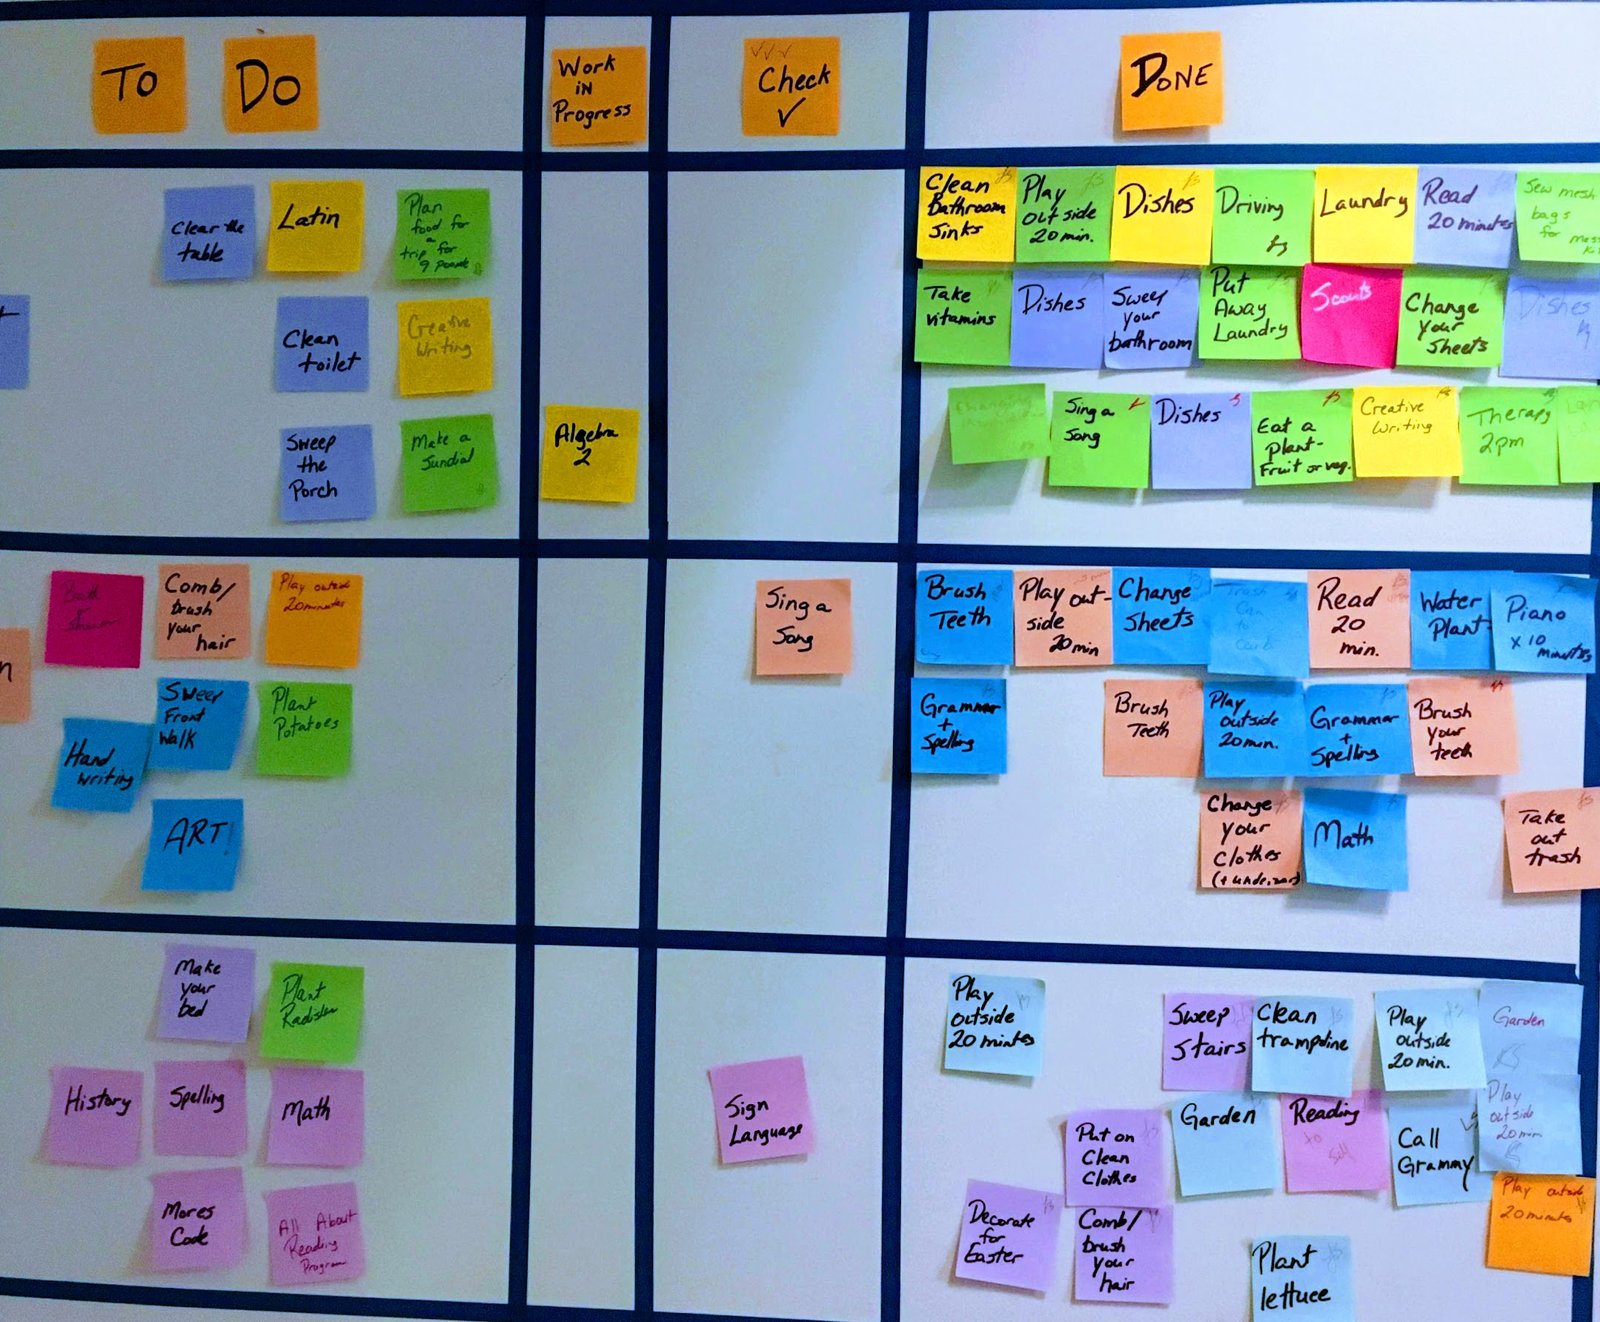 To Do
Work
in
Progress
Check
✓
Done
Clear the
table
Latin
Plan
food for
a
trip for
9 people
Clean
toilet
Creative
Writing
Sweep
the
Porch
Make a
Sundial
Algebra
2
Clean
Bathroom
Sinks
Play
out side
20 min.
Dishes
Driving
Laundry
Read
20 minutes
Sew mesh
bags
for mess
Take
vitamins
Dishes
Sweep
your
bathroom
Put
Away
Laundry
Scouts
Change
your
Sheets
Dishes
Sing a
Song
Dishes
Eat a
Plant-
Fruit or veg.
Creative
Writing
Therapy
2pm
Comb/
brush
your
hair
Play outside
20 minutes
Hand
writing
Sweep
Front
Walk
Plant
Potatoes
ART!
Sing a
Song
Brush
Teeth
Play out-
side
20 min
Change
Sheets
Trash
Can
to
Curb
Read
20
min.
Water
Plant
Piano
x 10
minutes
Grammar
+
Spelling
Brush
Teeth
Play
outside
20 min.
Grammar
+
Spelling
Brush
your
teeth
Change
your
Clothes
Math
Take
out
trash
Make
your
bed
Plant
Radishes
History
Spelling
Math
Mores
Code
All About
Reading
Program
Sign
Language
Play
outside
20 mintes
Sweep
Stairs
Clean
trampoline
Play
outside
20 min.
Garden
Put on
Clean
Clothes
Garden
Reading
Call
Grammy
Play
outside
20 min
Decorate
for
Easter
Comb/
brush
your
hair
Plant
lettuce
Play outside
20 minutes